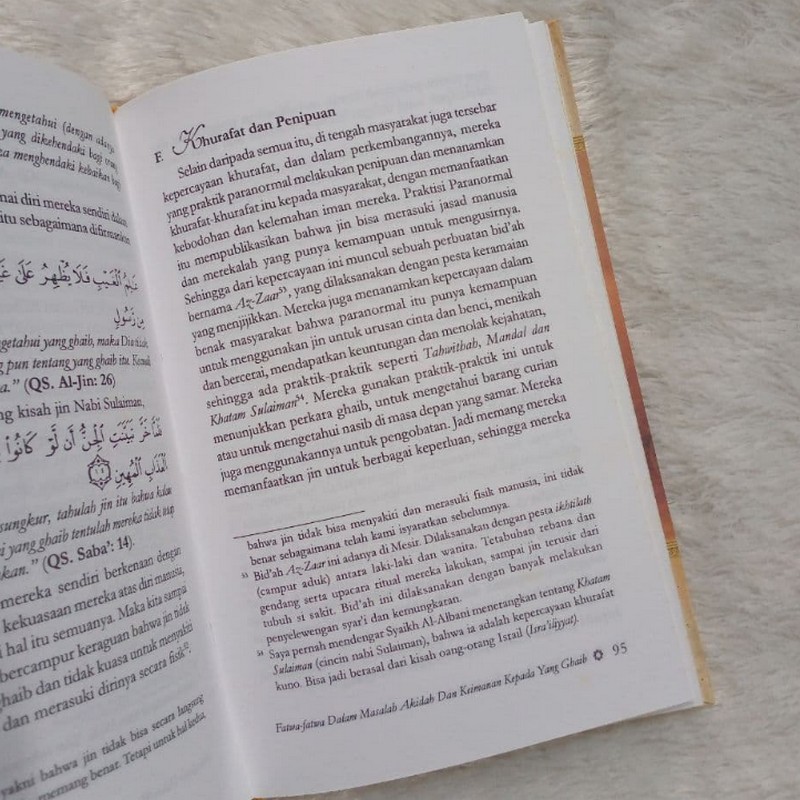 mengetahui (dengan
yang dikehendaki bagi
menghendaki kebaikan bagi
nai diri mereka sendiri dalam
itu sebagaimana difirmankan
مِن رَّسُولٍ
getahui yang ghaib, maka Dia tidak
pun tentang yang ghaib itu. Kecuali
a." (QS. Al-Jin: 26)
ng kisah jin Nabi Sulaiman,
الْعَذَابِ الْمُهِينِ
sungkur, tahulah jin itu bahwa kalau
i yang ghaib tentulah mereka tidak
kan." (QS. Saba': 14).
mereka sendiri berkenaan dengan
kekuasaan mereka atas diri manusia,
i hal itu semuanya. Maka kita sampai
bercampur keraguan bahwa jin tidak
ghaib dan tidak kuasa untuk menyakiti
dan merasuki dirinya secara fisik⁵².
yakni bahwa jin tidak bisa secara langsung
memang benar. Tetapi untuk hal kedua,
F. Khurafat dan Penipuan
Selain daripada semua itu, di tengah masyarakat juga tersebar
kepercayaan khurafat, dan dalam perkembangannya, mereka
yang praktik paranormal melakukan penipuan dan menanamkan
khurafat-khurafat itu kepada masyarakat, dengan memanfaatkan
kebodohan dan kelemahan iman mereka. Praktisi Paranormal
itu mempublikasikan bahwa jin bisa merasuki jasad manusia
dan merekalah yang punya kemampuan untuk mengusirnya.
Sehingga dari kepercayaan ini muncul sebuah perbuatan bid'ah
bernama Az-Zaar⁵³, yang dilaksanakan dengan pesta keramaian
yang menjijikkan. Mereka juga menanamkan kepercayaan dalam
benak masyarakat bahwa paranormal itu punya kemampuan
untuk menggunakan jin untuk urusan cinta dan benci, menikah
dan bercerai, mendapatkan keuntungan dan menolak kejahatan,
sehingga ada praktik-praktik seperti Tahwithah, Mandal dan
Khatam Sulaiman⁵⁴. Mereka gunakan praktik-praktik ini untuk
menunjukkan perkara ghaib, untuk mengetahui barang curian
atau untuk mengetahui nasib di masa depan yang samar. Mereka
juga menggunakannya untuk pengobatan. Jadi memang mereka
memanfaatkan jin untuk berbagai keperluan, sehingga mereka
bahwa jin tidak bisa menyakiti dan merasuki fisik manusia, ini tidak
benar sebagaimana telah kami isyaratkan sebelumnya.
⁵³ Bid'ah Az-Zaar ini adanya di Mesir. Dilaksanakan dengan pesta ikhtilath
(campur aduk) antara laki-laki dan wanita. Tetabuhan rebana dan
gendang serta upacara ritual mereka lakukan, sampai jin terusir dari
tubuh si sakit. Bid'ah ini dilaksanakan dengan banyak melakukan
penyelewengan syar'i dan kemungkaran.
⁵⁴ Saya pernah mendengar Syaikh Al-Albani menerangkan tentang Khatam
Sulaiman (cincin nabi Sulaiman), bahwa ia adalah kepercayaan khurafat
kuno. Bisa jadi berasal dari kisah oang-orang Israil (Isra'iliyyat).
Fatwa-fatwa Dalam Masalah Akidah Dan Keimanan Kepada Yang Ghaib 95